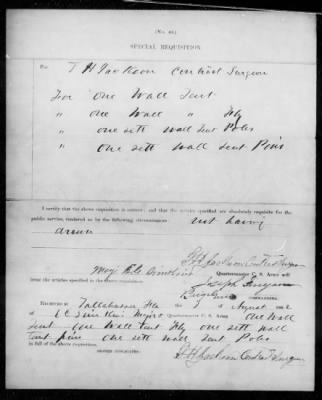 (No. 40.)
SPECIAL REQUISITION
For T H Jackson Contract Surgeon
For one Wall Tent
" one Wall " Fly
" one sett wall Tent Poles
" one sett wall tent Pins
I certify that the above requisition is correct; and that the articles specified are absolutely requisite for the
public service, rendered so by the following circumstances: not having
drawn
T H Jackson Contract Surgeon
Maj Quartermaster C. S. Army will
issue the articles specified in the above requisition. Joseph Finegan
COMMANDING.
RECEIVED at Tallahassee Fla the of August 186
of Major Quartermaster C. S. Army one Wall
Tent one Wall tent Fly one sett wall
tent pins one sett wall tent Poles
in full of the above requisition.
T H Jackson Contract Surgeon
(SIGNED DUPLICATES.)